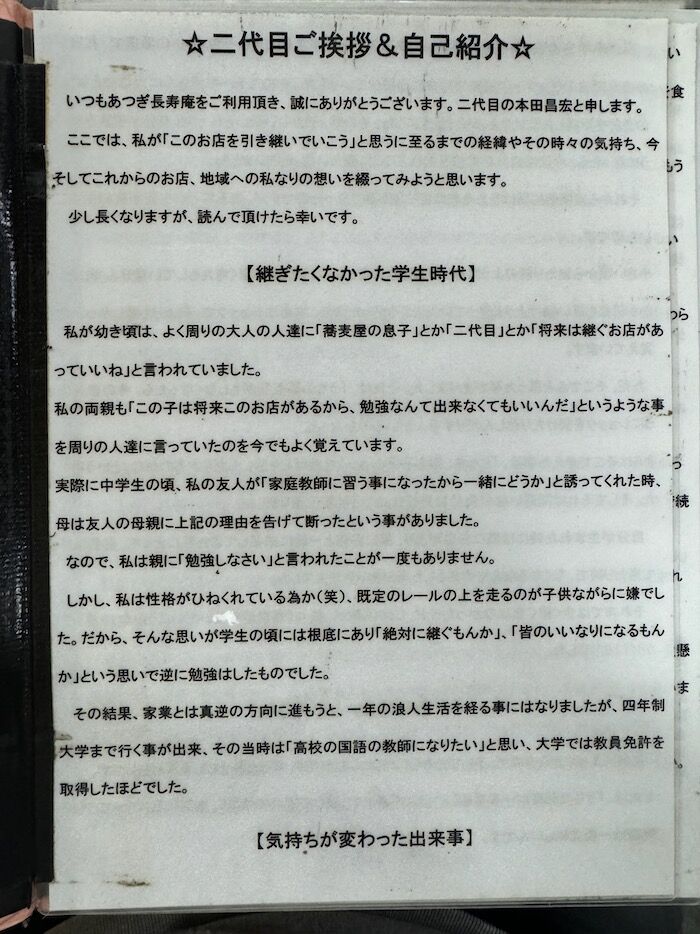 ☆二代目ご挨拶＆自己紹介☆
いつもあつぎ長寿庵をご利用頂き、誠にありがとうございます。二代目の本田昌宏と申します。
ここでは、私が「このお店を引き継いでいこう」と思うに至るまでの経緯やその時々の気持ち、今
そしてこれからのお店、地域への私なりの想いを綴ってみようと思います。
少し長くなりますが、読んで頂けたら幸いです。
【継ぎたくなかった学生時代】
私が幼き頃は、よく周りの大人の人達に「蕎麦屋の息子」とか「二代目」とか「将来は継ぐお店があ
っていいね」と言われていました。
私の両親も「この子は将来このお店があるから、勉強なんて出来なくてもいいんだ」というような事
を周りの人達に言っていたのを今でもよく覚えています。
実際に中学生の頃、私の友人が「家庭教師に習う事になったから一緒にどうか」と誘ってくれた時、
母は友人の母親に上記の理由を告げて断ったという事がありました。
なので、私は親に「勉強しなさい」と言われたことが一度もありません。
しかし、私は性格がひねくれている為か（笑）、既定のレールの上を走るのが子供ながらに嫌でし
た。だから、そんな思いが学生の頃には根底にあり「絶対に継ぐもんか」、「皆のいいなりになるもん
か」という思いで逆に勉強はしたものでした。
その結果、家業とは真逆の方向に進もうと、一年の浪人生活を経る事にはなりましたが、四年制
大学まで行く事が出来、その当時は「高校の国語の教師になりたい」と思い、大学では教員免許を
取得したほどでした。
【気持ちが変わった出来事】